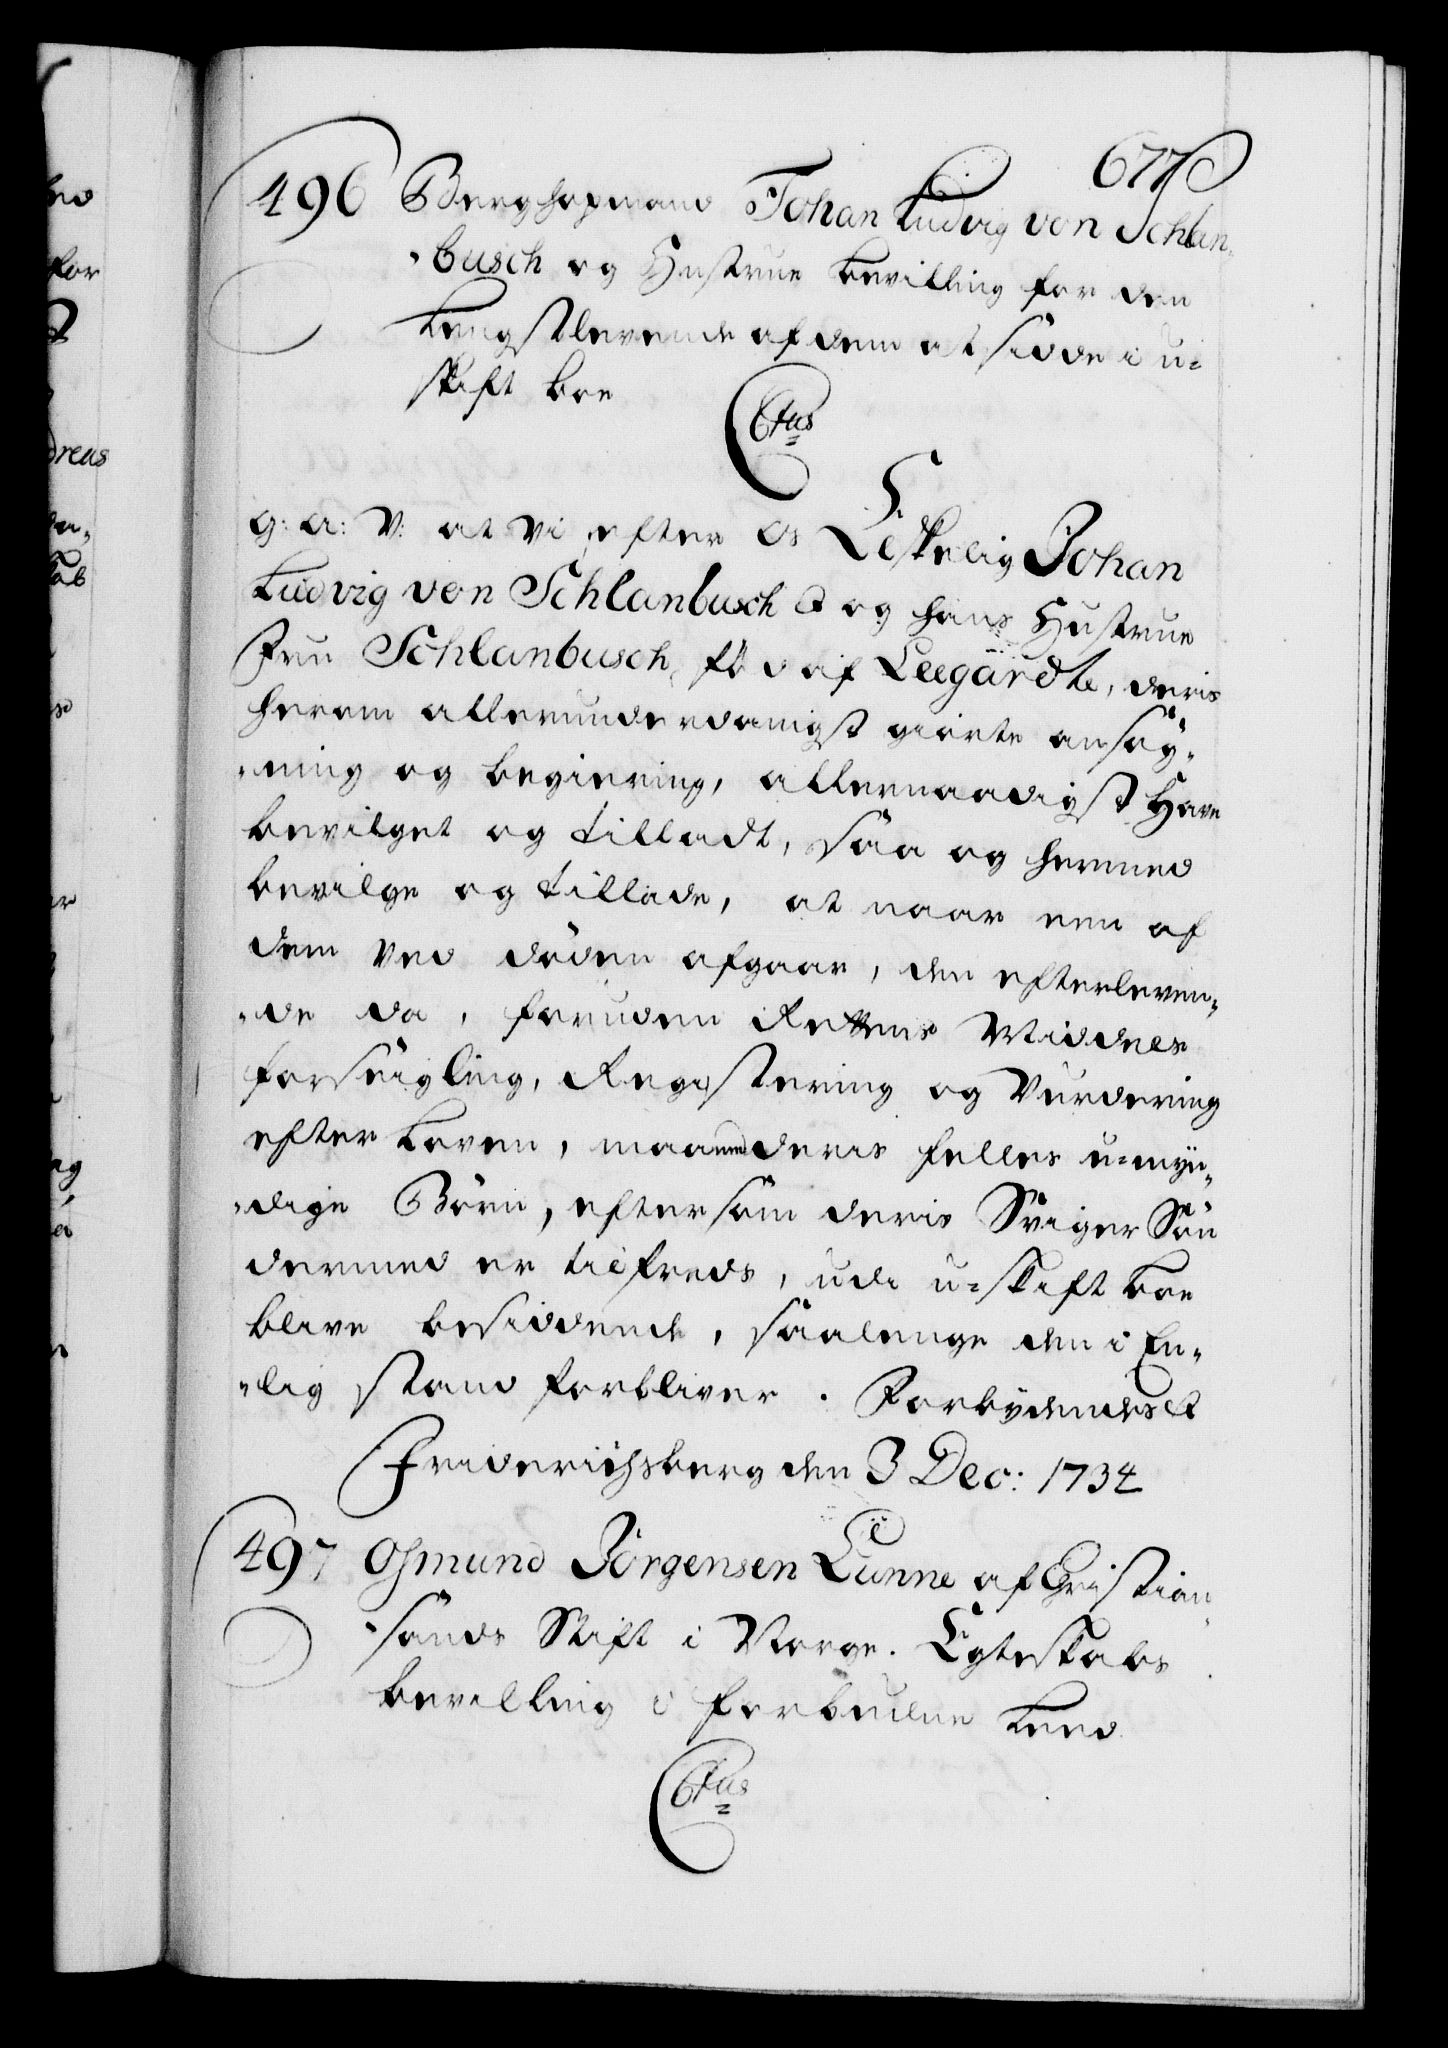 677
496 Berghopmand Johan Ludvig von Schlan-
busch og Hustrue bevilling for den
Lengstlevende af dem at sidde i u-
skift boe
C6tus
G: A: V: at Vi efter Os Elskelig Johan
Ludvig von Schlanbusch &c og hans Hustrue
Fru Schlanbusch, fød af Leegårdte, deris
herom allerunderdanigst giorte ansøg-
ning og begiering, allernaadigst Have
bevilget og tilladt, saa og hermed
bevilge og tillade, at naar een af
dem ved døden afgaar, den efterleven-
de da, foruden Rettens Middels
forseigling, Registering og Vurdering
efter Loven, maa med deris felles u-myn-
dige Børn, eftersom deris Sviger Søn
dermed er tilfreds, udi u-skift boe
blive besiddende, saalenge den i En-
lig stand forbliver. Forbydendes &c
Friderichsberg den 3 Dec: 1734
497 Osmund Jörgensen Lunne af Christian
sands Stift i Norge. Egteskabs
bevilling i forbudne Leed
C6tus